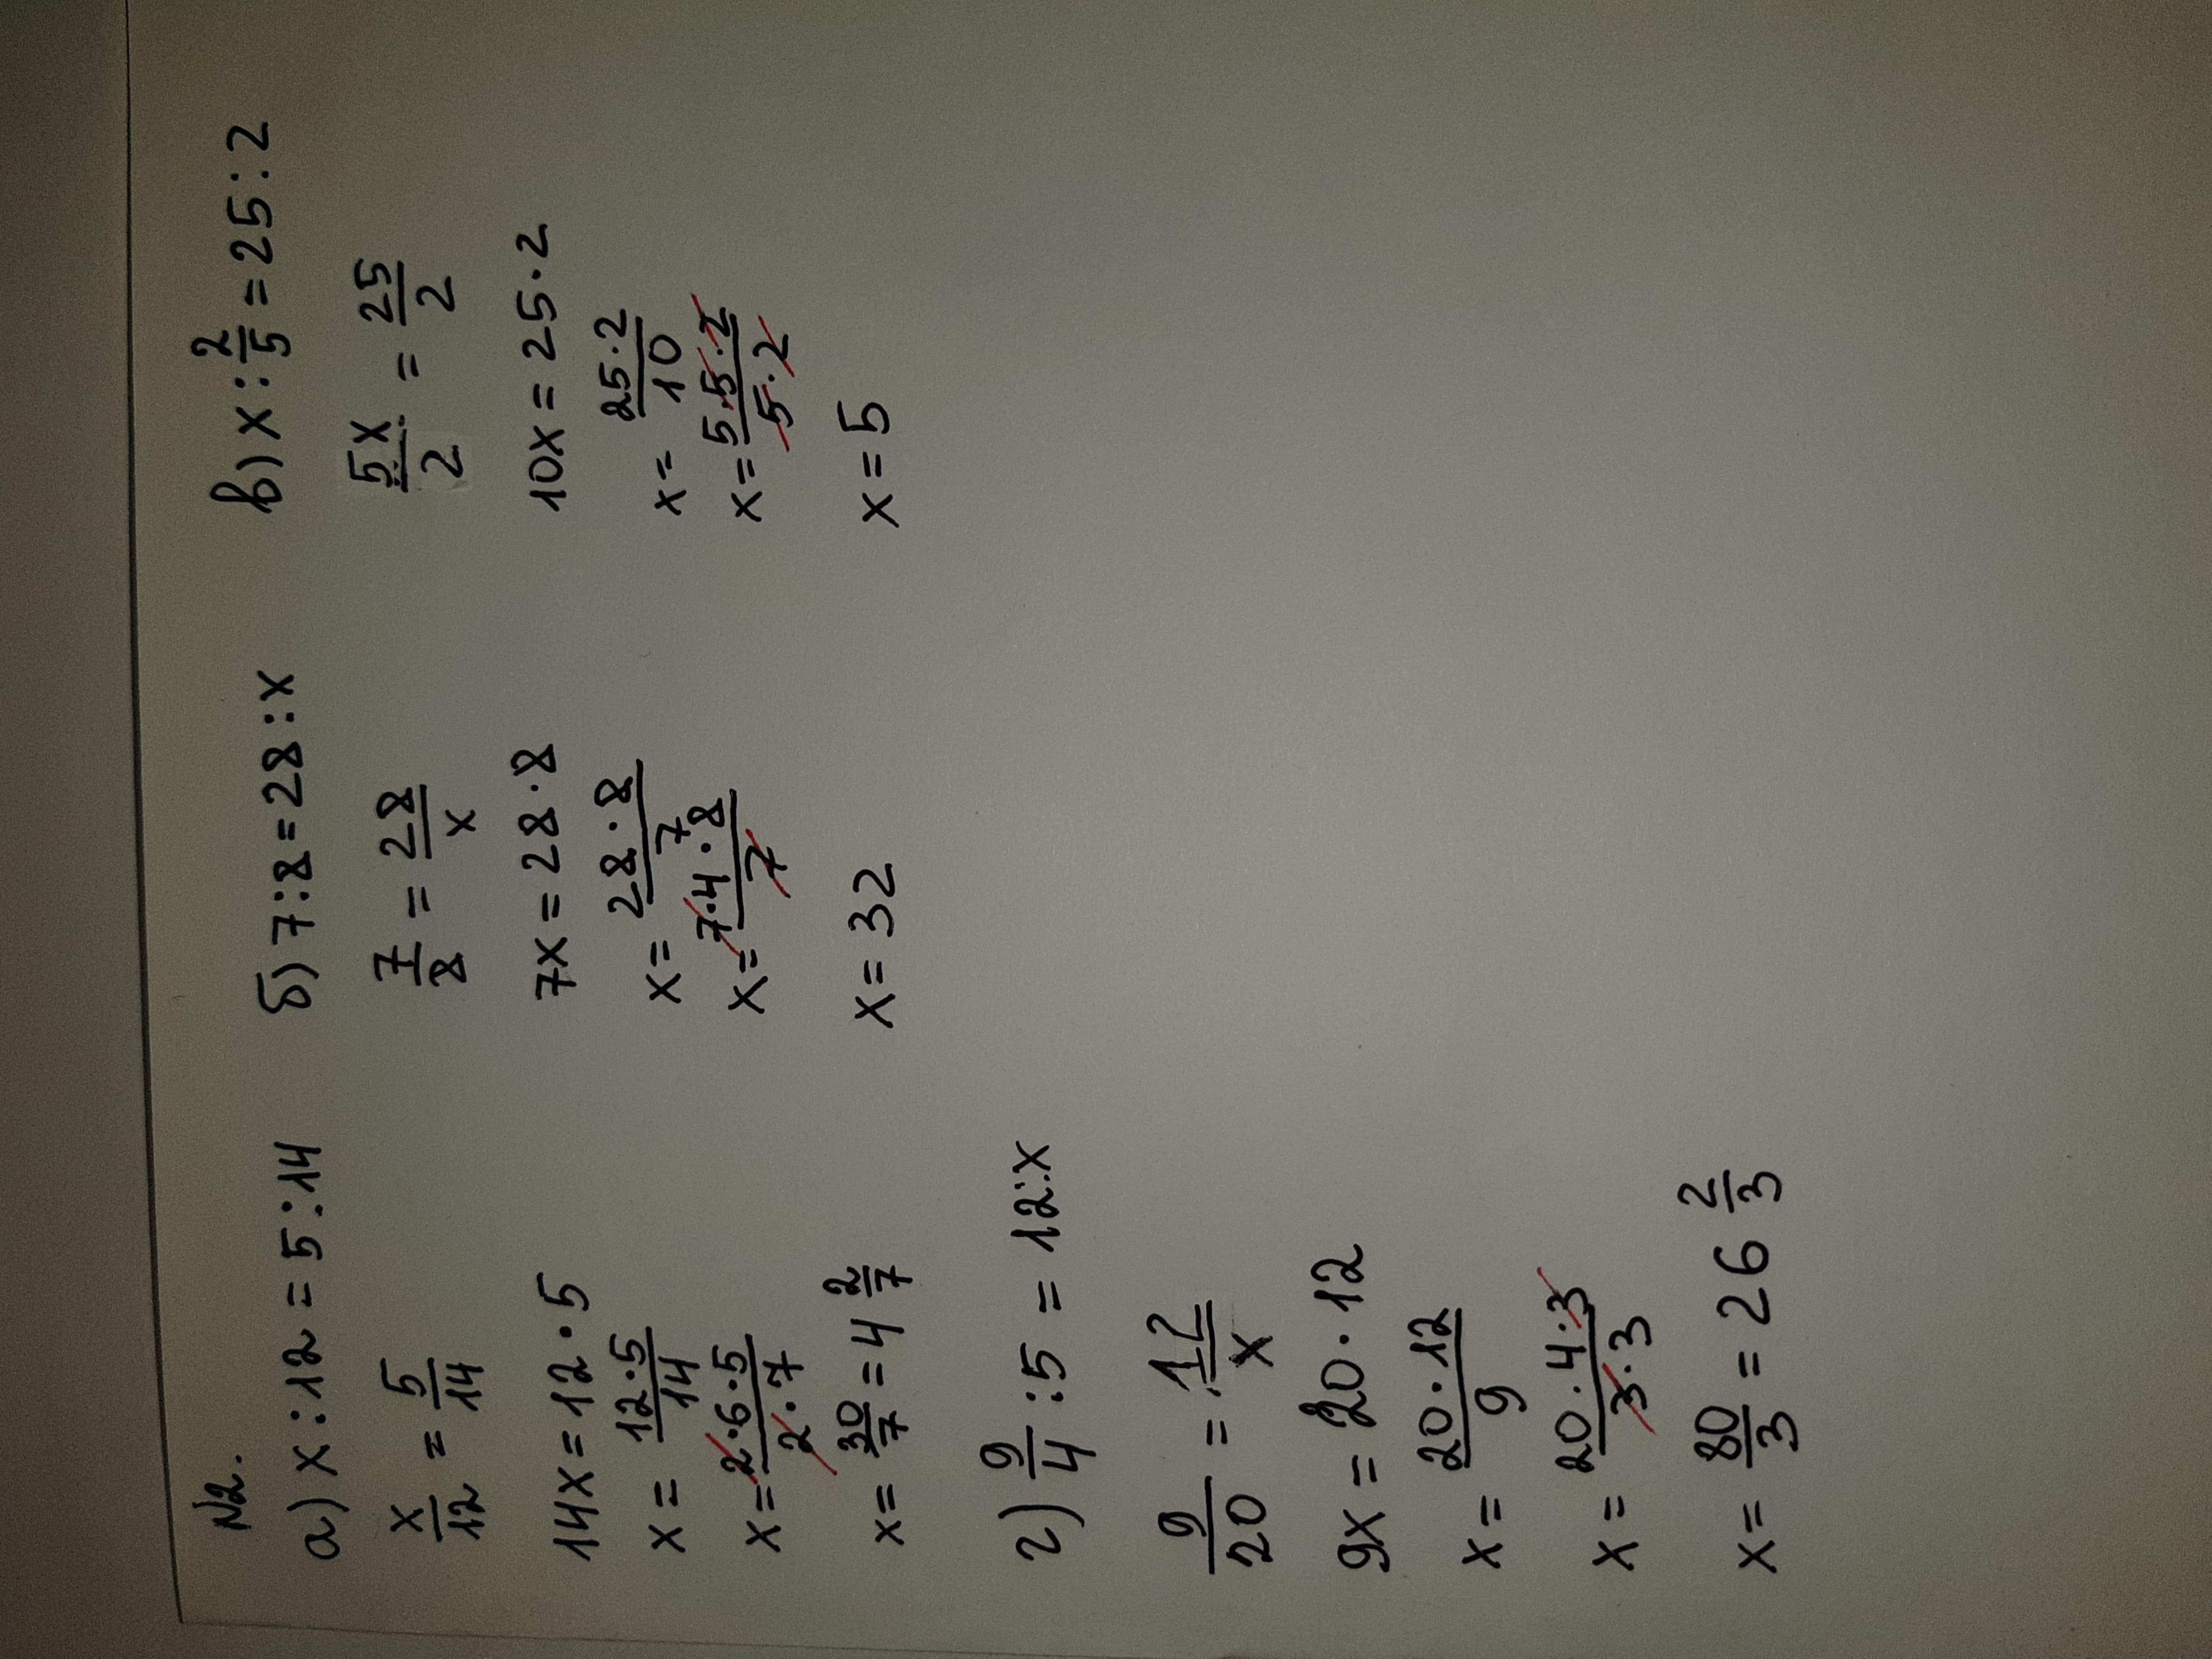 №2.
а) x : 12 = 5 : 14
x/12 = 5/14
14x = 12 · 5
x = 12·5/14
x = 2·6·5/2·7
x = 30/7 = 4 2/7
б) 7 : 8 = 28 : x
7/8 = 28/x
7x = 28 · 8
x = 28·8/7
x = 7·4·8/7
x = 32
в) x : 2/5 = 25 : 2
5x/2 = 25/2
10x = 25 · 2
x = 25·2/10
x = 5·5·2/5·2
x = 5
г) 9/4 : 5 = 12 : x
9/20 = 12/x
9x = 20 · 12
x = 20·12/9
x = 20·4·3/3·3
x = 80/3 = 26 2/3